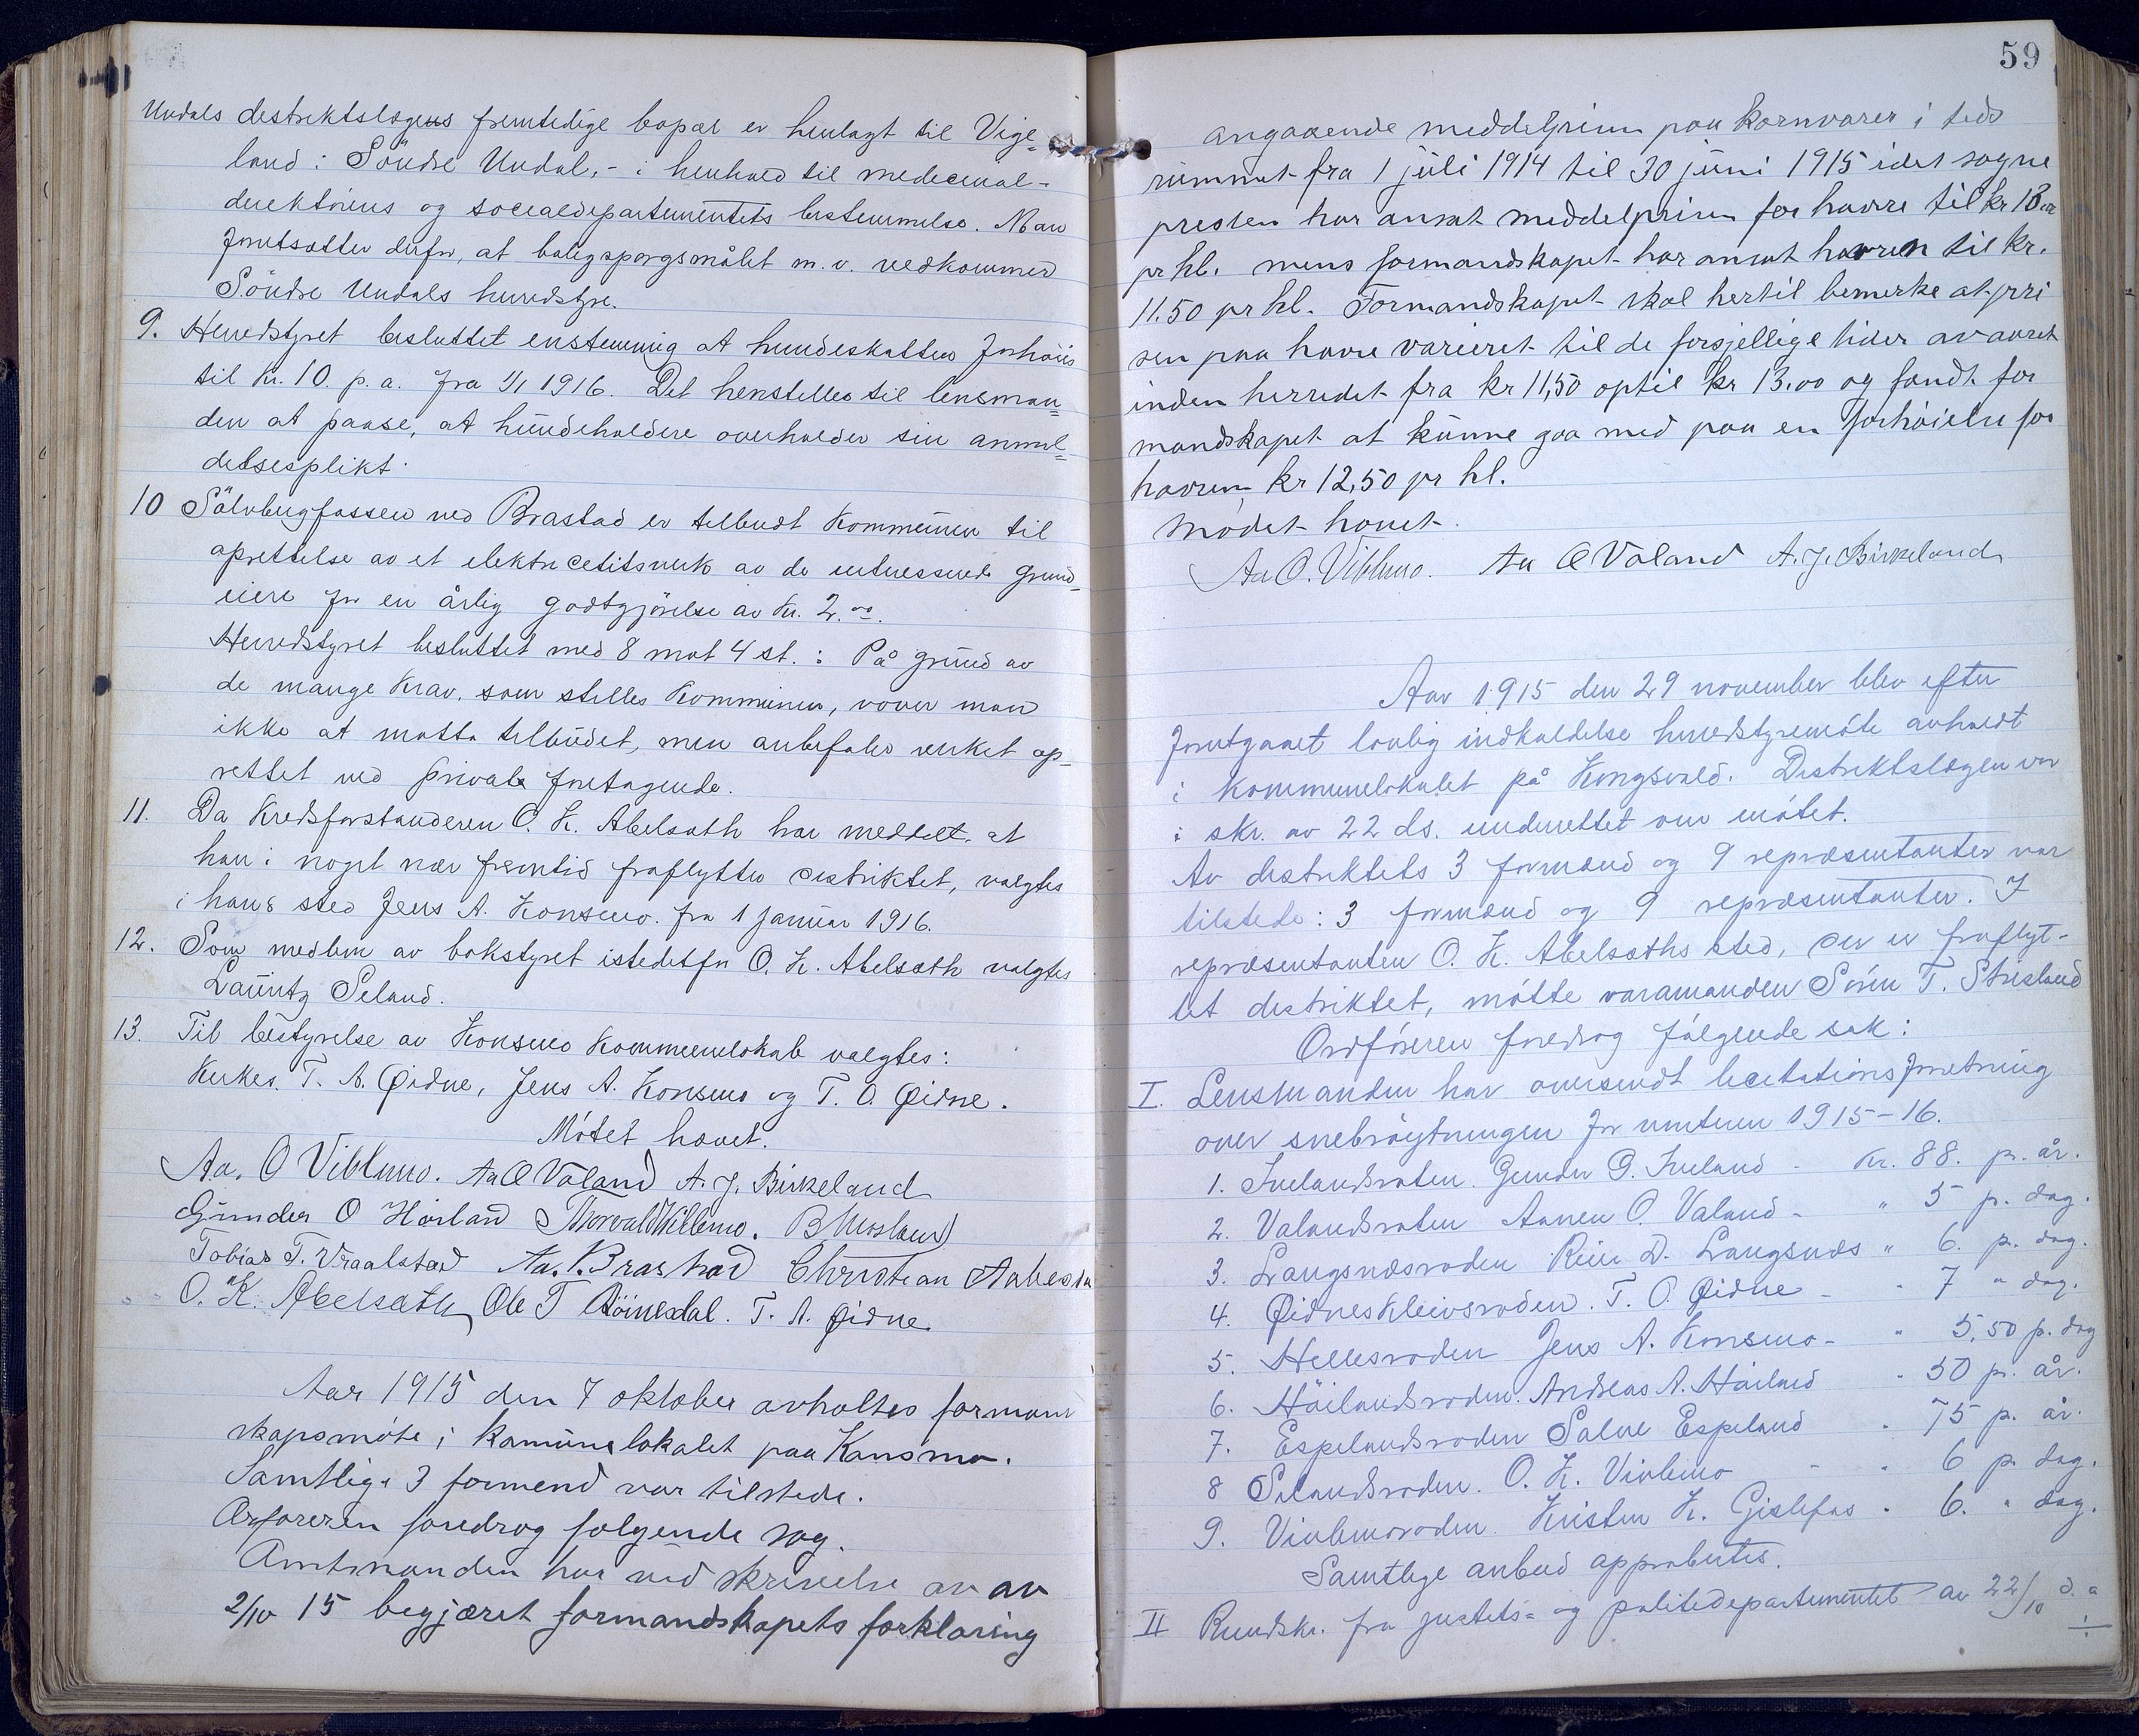 Undals destriktslægens fremtidige bopæl er henlagt til Vige-
land i Söndre Undal, - i henhold til medecinal-
derektörens og socialdepartementets bestemmelse. Man
forutsætter derfor, at boligspørgsmålet m. v. vedkommer
Söndre Undals herredstyre.
9. Herredstyret besluttet enstemmig at hundeskatten forhöies
til kr. 10. p. a. fra 1/1 1916. Det henstilles til lensman-
den at paase, at hundeholdere overholder sin anmel-
delsesplikt.
10 Sölvbergfossen ved Brastad er tilbudt Kommunen til
oprettelse av et elektricetitsverk av de interesserede grund-
eiere for en årlig godtgjörelse av Kr. 2.00.
Herredstyret besluttet med 8 mot 4 st.: På grund av
de mange Krav, som stilles Kommunen, vover man
ikke at motta tilbudet, men anbefaler verket op-
rettet ved private foretagende.
11. Da Kredsforstanderen O. K. Abelsæth har meddelt at
han i noget nær fremtid fraflytter destriktet, valgtes
i hans sted Jens A. Konsmo. fra 1 januar 1916.
12. Som medlem av bokstyret istedetfor O. K. Abelsæth valgtes
Lauritz Seland.
13. Til bestyrelse av Konsmo Kommunelokale valgtes:
T. A. Øidne, Jens A. Konsmo og T. O. Øidne.
Mötet hævet.
Aa. O Viblemo. Aa O Valand A. J. Birkeland
Gunder O Hörland Thorvald Viblemo.
Tobias T. Vraalstad Aa. Brastad Christian
O. K. Abelsæth Ole T T. A. Øidne
Aar 1915 den 7 oktober avholtes formand
skapsmöte i Kamunelokalet paa Konsmo.
Samtlige 3 formend var tilstede.
Orføreren foredrog folgende sag.
Amtmanden har ved skrivelse av av
2/10 15 begjæret formandskapets forklaring
59
angaaende meddelprisen paa kornvarer i tids
rummet fra 1 juli 1914 til 30 juni 1915 idet sogne
presten har ansat meddelprisen for havre til kr 13.00
pr hl. mens formandskapet har ansat havren til kr.
11.50 pr hl. Formandskapet skal hertil bemerke at pri
sen paa havre varieret til de forsjellige tider av aaret
inden herredet fra kr 11,50 optil kr 13.00 og fandt for
mandskapet at kunne gaa med paa en forhöielse for
havren kr 12,50 pr hl.
Mödet hævet.
Aa O. Viblemo. Aa O Valand A. J. Birkeland
Aar 1915 den 29 november blev efter
forutgaaet lovlig indkaldelse herredstyremöte avholdt
i kommunelokalet på Kongsvold. Destriktslægen var
i skr. av 22 ds. underrettet om mötet.
Av destriktets 3 formænd og 9 repræsentanter var
tilstede: 3 formænd og 9 repræsentanter. I
repræsentanten O. K. Abelsæths sted, der er fraflyt-
tet destriktet, mötte varamanden Sören T. Stusland
Ordföreren foredrog fölgende sak:
I. Lensmanden har oversendt licitationsforretning
over snebröytningen for vinteren 1915-16.
1. Irelandsroden. Gunder G. Ireland - Kr. 88. pr. år.
2. Valandsroten Aanen O. Valand - " 5 p. dag.
3. Langsnæsroden Reier D. Langsnæs " 6. p. dag.
4. Øidneskleivsroden. T. O. Øidne - " 7 " dag.
5. Hellesroden Jens A. Konsmo - " 5,50 p. dag
6. Höilandsroden. Andreas A. Höiland " 50 pr. år.
7. Espelandsroden Salve Espeland " 75 p. år.
8 Selandsroden. O. K. Viblemo - " 6 p. dag.
9. Viblemoroden. Kristen K. Gislefos " 6. " dag.
Samtlige anbud approbertes.
II Rundskr. fra justets- og politidepartementet av 22/10 d. a